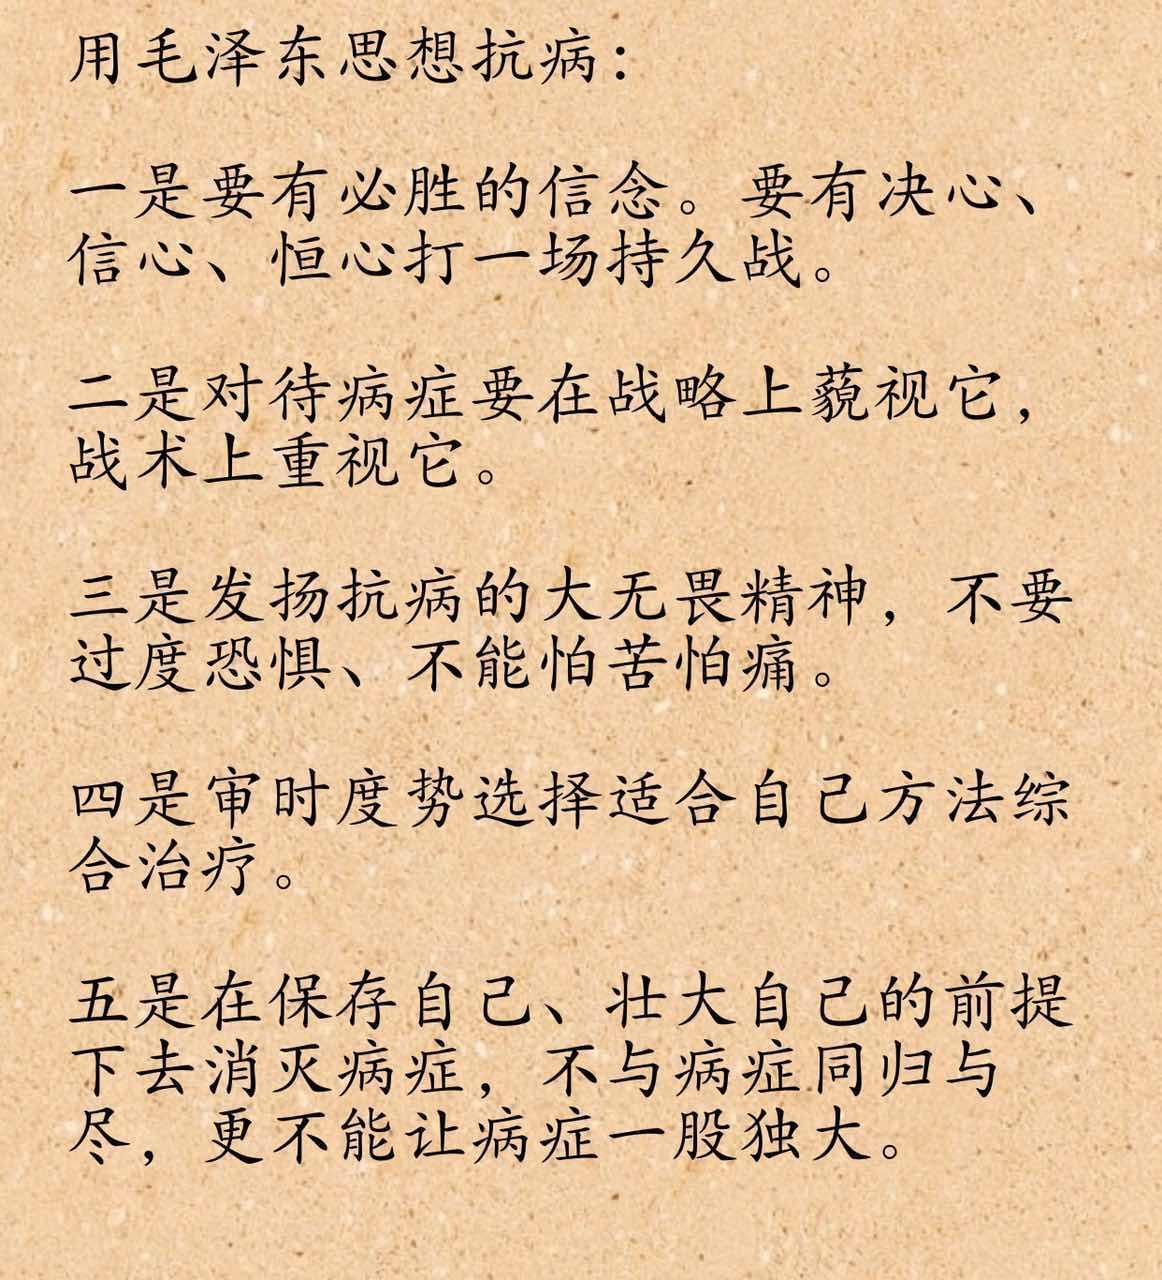 用毛泽东思想抗病：
一是要有必胜的信念。要有决心、
信心、恒心打一场持久战。
二是对待病症要在战略上藐视它，
战术上重视它。
三是发扬抗病的大无畏精神，不要
过度恐惧、不能怕苦怕痛。
四是审时度势选择适合自己方法综
合治疗。
五是在保存自己、壮大自己的前提
下去消灭病症，不与病症同归与
尽，更不能让病症一股独大。